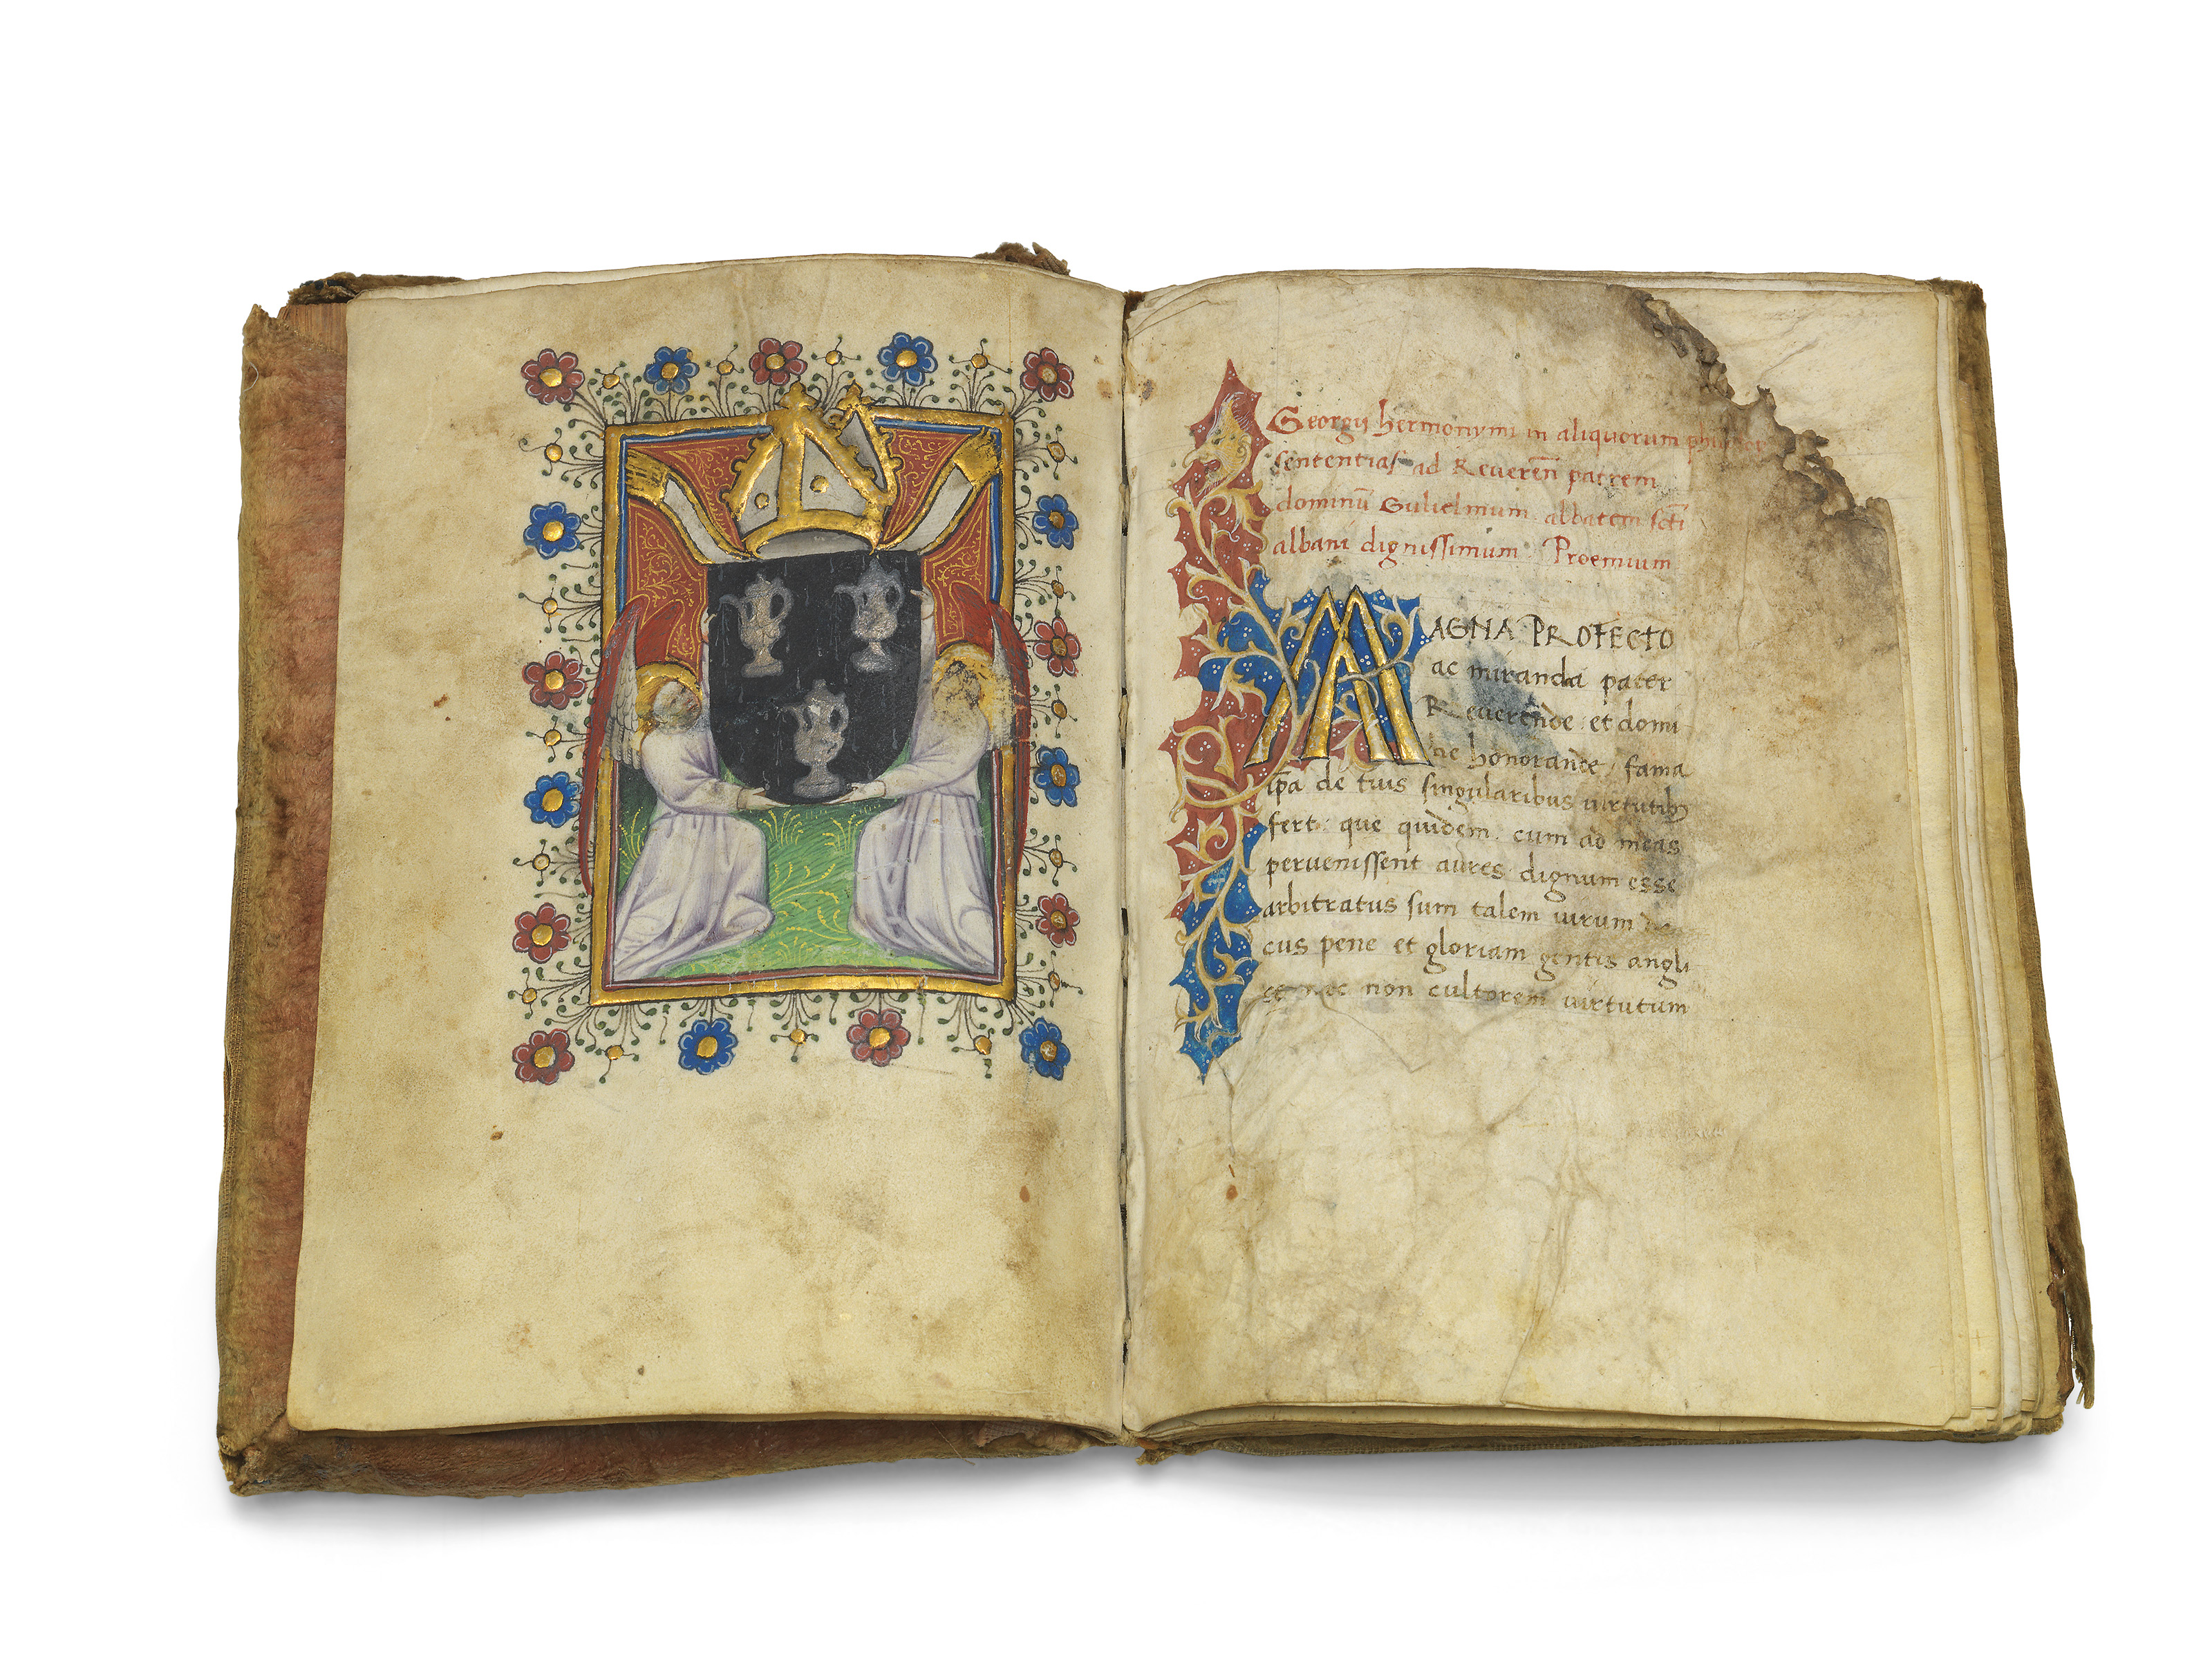 Georgij hermonymi in aliquorum
sententias ad Reveren̄ patrem
dominū Gulielmum abbatem sc̄ti
albani dignissimum Proemium
MAGNA PROFECTO
ac miranda pater
Reverende et domi
ne honorande, fama
ip̄a de tuis singularibus virtutib
fert: que quidem cum ad meas
pervenissent aures dignum esse
arbitratus sum talem virum
cus pene et gloriam gentis angli
non cultorem virtutum